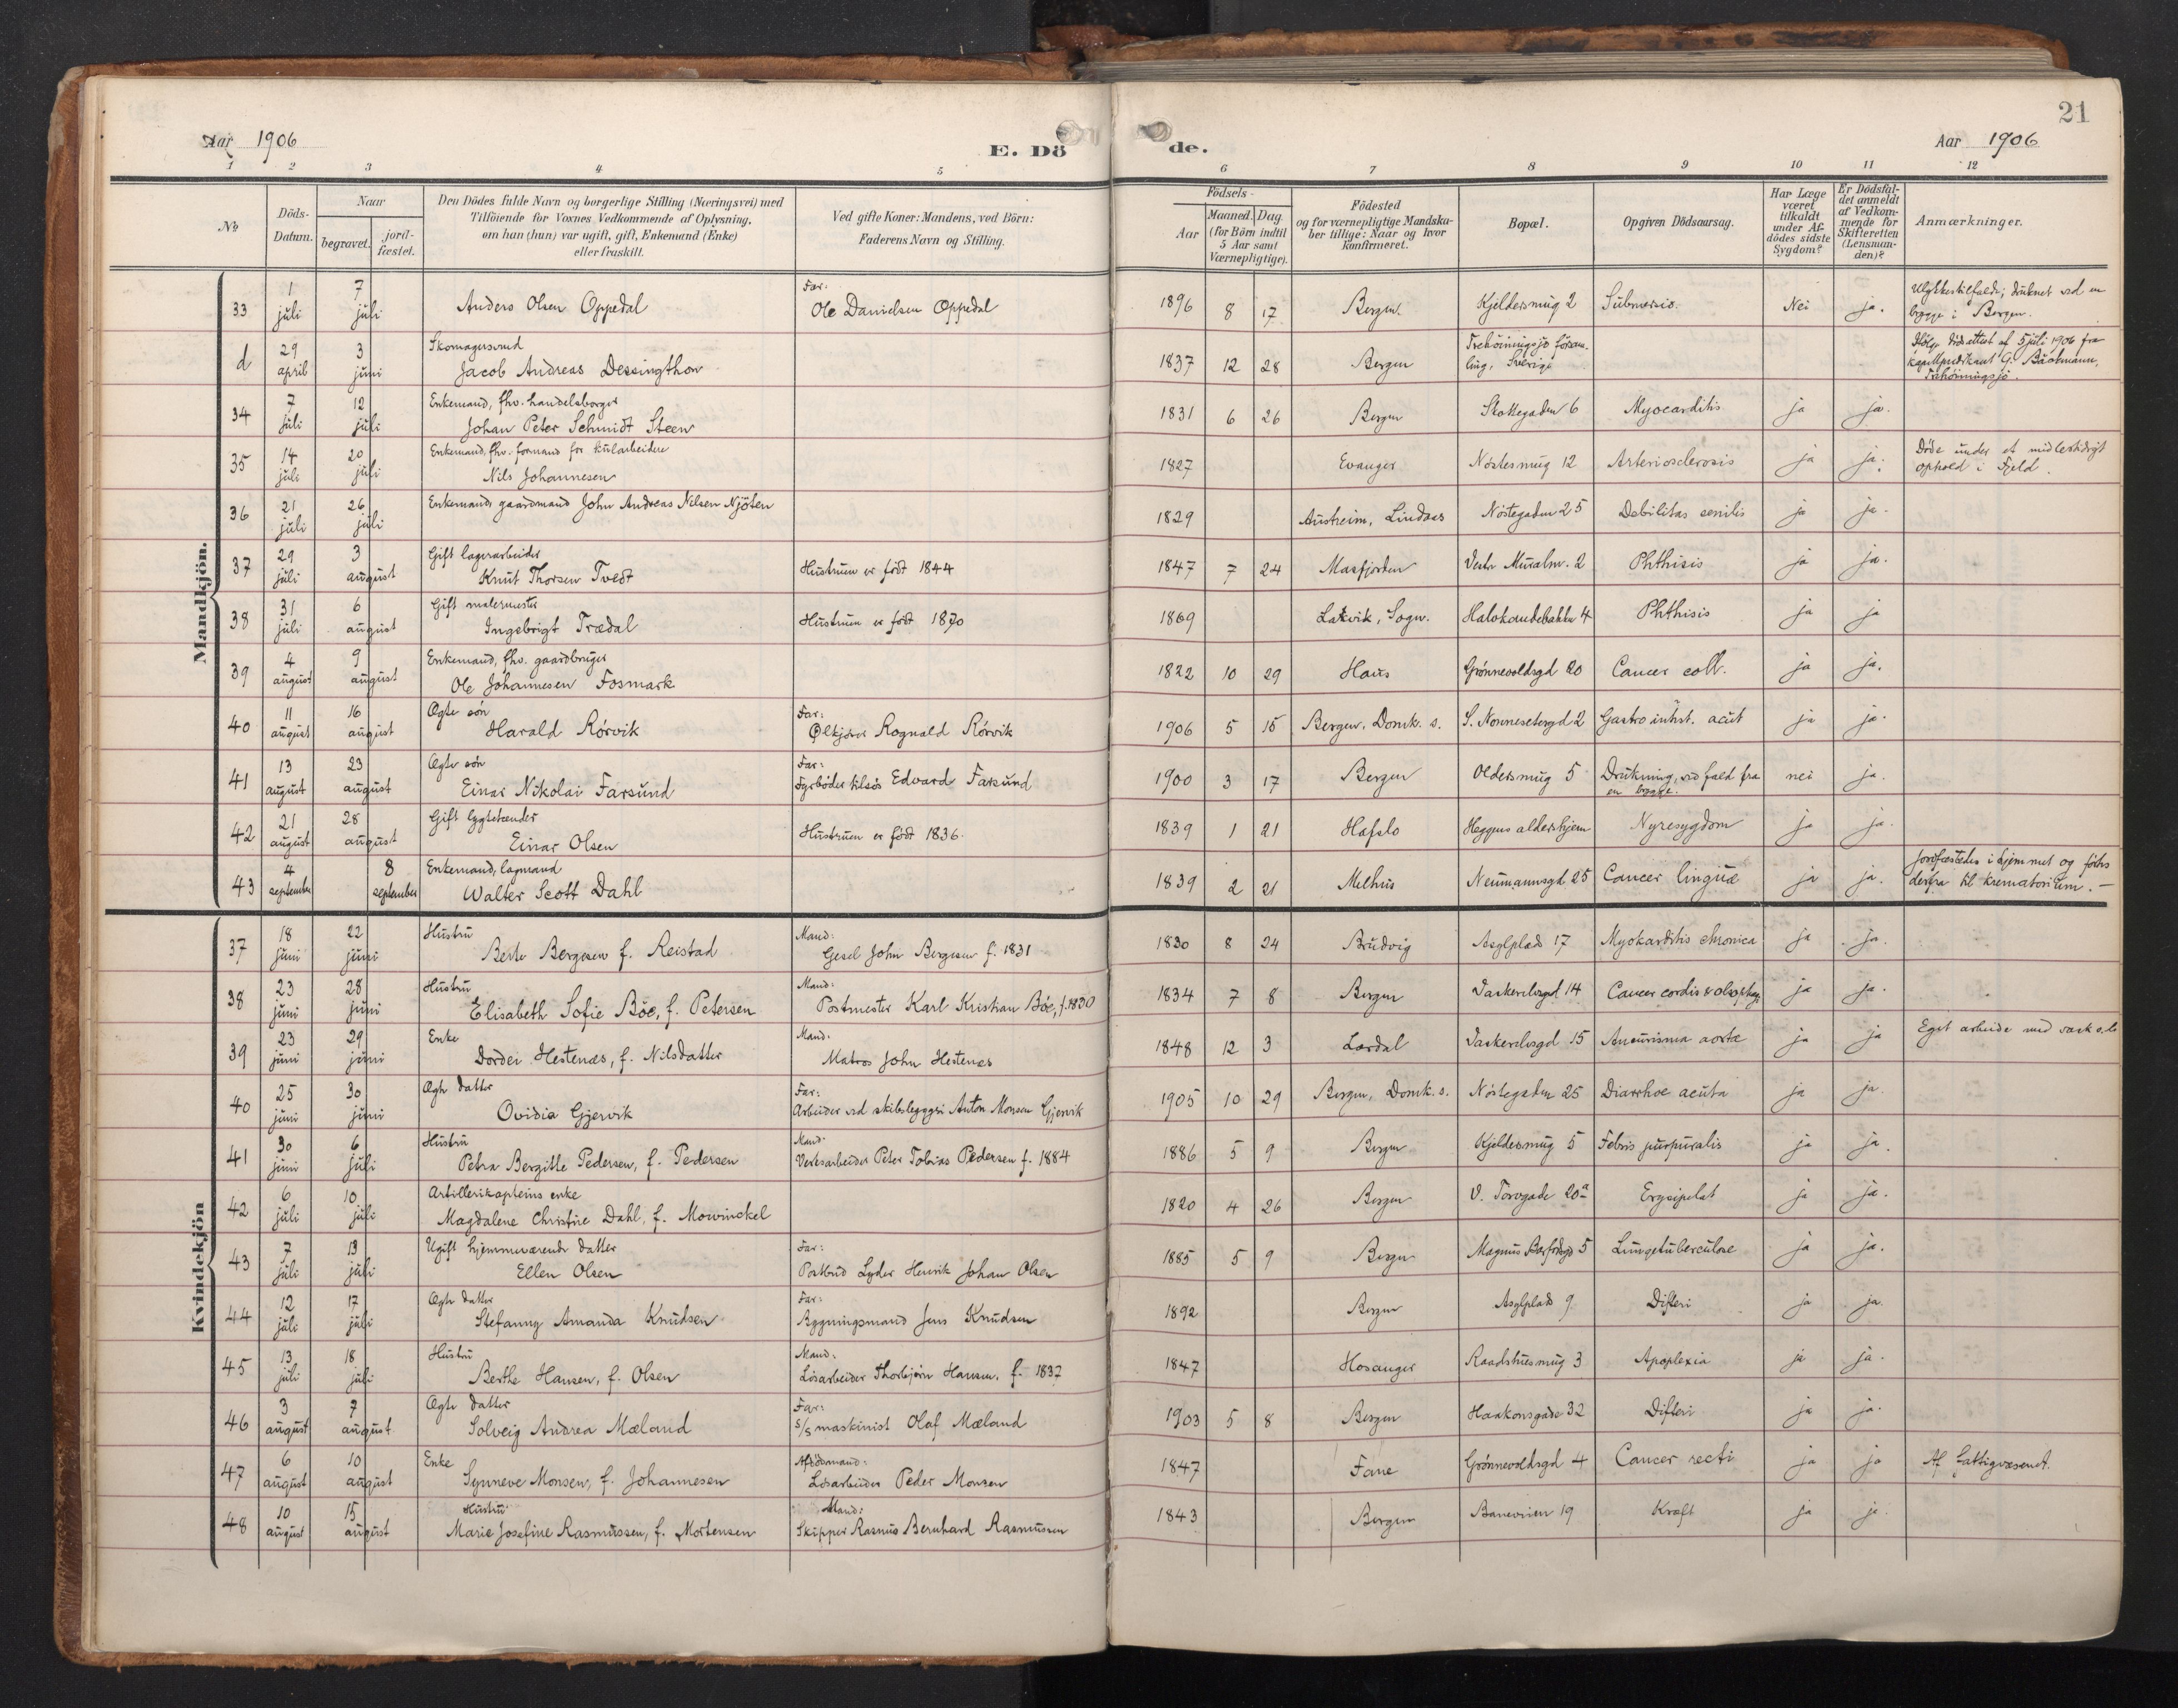 21
Aar 1906
E. Dö
de.
Aar 1906
1 2 3 4 5 6 7 8 9 10 11 12
No
Döds-
Datum.
Naar
begravet.
jord-
fæstet.
Den Dödes fulde Navn og borgerlige Stilling (Næringsvei) med
Tilföiende for Voxnes Vedkommende af Oplysning,
om han (hun) var ugift, gift, Enkemand (Enke)
eller fraskilt.
Ved gifte Koner: Mandens, ved Börn:
Faderens Navn og Stilling.
Födsels-
Aar
Maaned. Dag
(for Börn indtil
5 Aar samt
Værnepligtige).
Födested
og for værnepligtige Mandska-
ber tillige: Naar og hvor
konfirmeret.
Bopæl.
Opgiven Dödsaarsag.
Har Læge
været
tilkaldt
under Af-
dödes sidste
Sygdom?
Er Dödsfal-
det anmeldt
af Vedkom-
mende for
Skifteretten
(Lensman-
den)?
Anmærkninger.
Mandkjön.
33 1 juli 7 juli Anders Olsen Oppedal Far: Ole Danielsen Oppedal 1896 8 17 Bergen. Kjeldersmug 2 Submersio. Nei ja. Ulykkestilfælde; druknet ved en brygge i Bergen.
d 29 april 3 juni Skomagersvend Jacob Andreas Dessingthon 1837 12 28 Bergen Trehörningsjø försam- ling, Sverige Ifølge dödsattest af 5 juli 1906 fra G. Bäckmann, Trehörningsjö.
34 7 juli 12 juli Enkemand, fhv. handelsborger Johan Peter Schmidt Steen 1831 6 26 Bergen Skottegaden 6 Myocarditis ja ja.
35 14 juli 20 juli Enkemand, fhv. formand for kularbeidere Nils Johannesen 1827 Evanger Nøstesmug 12 Arteriosclerosis ja ja. Döde under et midlertidigt ophold i Fjeld.
36 21 juli 26 juli Enkemand, gaardmand John Andreas Nilsen Njöten 1829 Austreim, Lindaas Nöstegaden 25 Debilitas senilis ja ja.
37 29 juli 3 august Gift lagerarbeider Knut Thorsen Tvedt Hustruen er født 1844 1847 7 24 Masfjorden Vestr Muralm. 2 Phthisis ja ja.
38 31 juli 6 august Gift malermester Ingebrigt Trædal Hustruen er født 1870 1869 Lavik, Sogn. 4 Phthisis ja ja
39 4 august 9 august Enkemand, fhv. gaardbruger Ole Johannesen Fosmark 1822 10 29 Haus Grønnevoldsgd 20 Cancer coll. ja ja.
40 11 august 16 august Ægte søn Harald Rörvik Far: Ølkjører Rognald Rörvik 1906 5 15 Bergen, Domk. s. S. Nonnesetergd 2 Gastro intest. acut ja ja.
41 13 august 23 august Ægte søn Einar Nikolai Farsund Far: Fyrböder tilsøs Edvard Farsund 1900 3 17 Bergen Oldersmug 5 Drukning, ved fald fra en brygge. nei ja.
42 21 august 28 august Gift lygtetænder Einar Olsen Hustruen er født 1836. 1839 1 21 Hafslo Heggens aldershjem Nyresygdom ja ja.
43 4 september 8 september Enkemand, lagmand Walter Scott Dahl 1839 2 21 Melhus Neumannsgd 25 Cancer linguæ ja ja. Jordfæstedes i hjemmet og førtes derfra til krematorium. —
Kvindekjön
37 18 juni 22 juni Hustru Berte Bergesen f. Reistad Mand: Gesel John Bergesen f. 1831 1830 8 24 Brudvig Asylplads 17 Myokarditis chronica ja ja.
38 23 juni 28 juni Hustru Elisabeth Sofie Böe, f. Petersen Mand: Postmester Karl Kristian Böe, f. 1830 1834 7 8 Bergen Vaskerelvsgd 14 Cancer cordis & ja ja.
39 23 juni 29 juni Enke Dordei Hestenæs, f. Nilsdatter Mand: Matros John Hestenæs 1848 12 3 Lærdal Vaskerelvsgd 15 Aneurisma aortæ ja ja Eget arbeide med vask o.l.
40 25 juni 30 juni Ægte datter Ovidia Gjervik Far: Arbeider ved skibsbyggeri Anton Monsen Gjervik 1905 10 29 Bergen, Domk. s. Nöstegaden 25 Diarrhoe acuta ja ja.
41 30 juni 6 juli Hustru Petra Bergitte Pedersen, f. Pedersen Mand: Verksarbeider Peter Tobias Pedersen f. 1884 1886 5 9 Bergen Kjeldersmug 5 Febris purpuralis ja ja.
42 6 juli 10 juli Artillerikapteins enke Magdalene Christine Dahl, f. Mowinckel 1820 4 26 Bergen V. Torvgade 20a Erysipelat ja ja.
43 7 juli 13 juli Ugift hjemmeværende datter Ellen Olsen Far: Postbud Lyder Henrik Johan Olsen 1885 5 9 Bergen Magnus Barfodsgd 5 Lungetuberculose ja ja.
44 12 juli 17 juli Ægte datter Stefanny Amanda Knudsen Far: Bygningsmand Jens Knudsen 1892 Bergen Asylplads 9 Difteri ja ja.
45 13 juli 18 juli Hustru Berthe Hansen, f. Olsen Mand: Løsarbeider Thorbjörn Hansen, f. 1837 1847 Hosanger Raadstuesmug 3 Apoplexia ja ja.
46 3 august 7 august. Ægte datter Solveig Andrea Mæland Far: s/s maskinist Olaf Mæland 1903 5 8 Bergen Haakonsgade 32 Difteri ja ja.
47 6 august 10 august Enke Synneve Monsen, f. Johannesen Afdødmand: Løsarbeider Peder Monsen 1847 Fane Grønnevoldsgd 4 Cancer recti ja ja Af Fattigvæsenet.
48 10 august 15 august Hustru Marie Josefine Rasmussen, f. Mortensen Mand: Skipper Rasmus Bernhard Rasmussen 1843 Bergen Baneveien 19 Kræft ja ja.